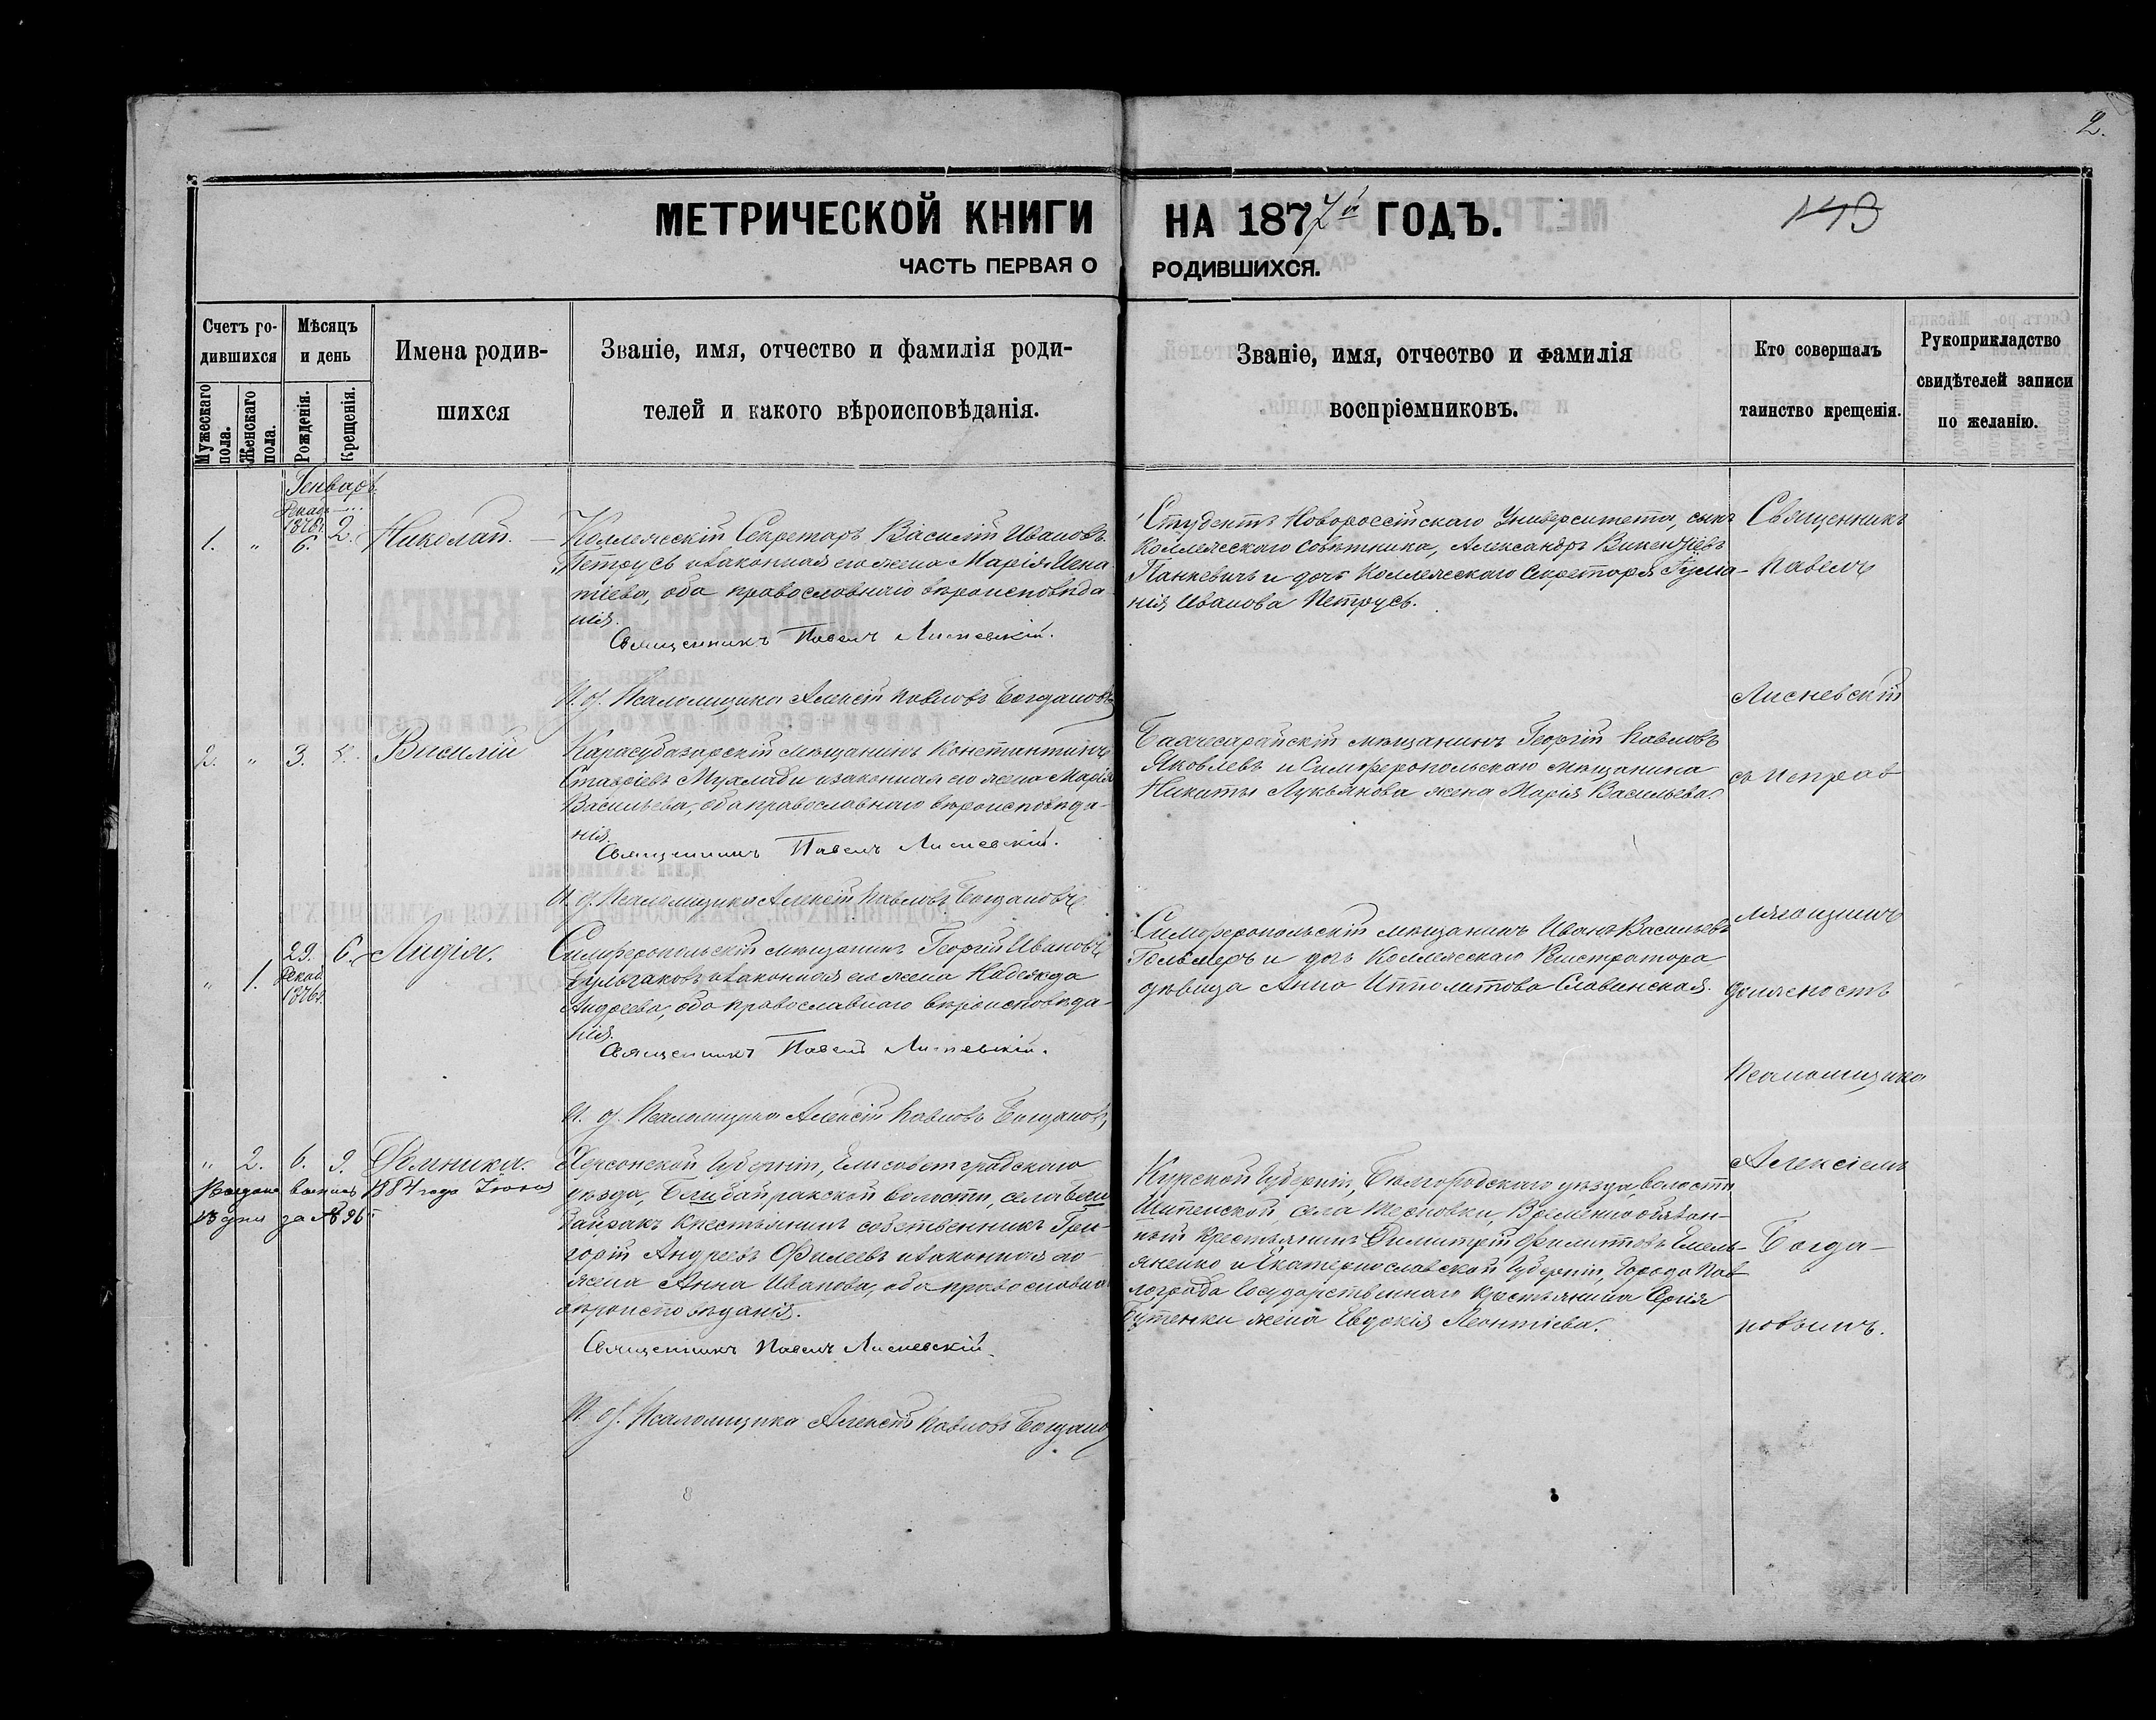 2.
МЕТРИЧЕСКОЙ КНИГИ НА 1877й ГОДЪ.
143
ЧАСТЬ ПЕРВАЯ О РОДИВШИХСЯ.
Счетъ ро-
дившихся
Мужескаго пола.
Женскаго пола.
Мѣсяцъ
и день
Рожденія.
Крещенія.
Имена родив-
шихся
Званіе, имя, отчество и фамилія роди-
телей и какого вѣроисповѣданія.
Званіе, имя, отчество и фамилія
воспріемниковъ.
Кто совершалъ
таинство крещенія.
Рукоприкладство
свидѣтелей записи
по желанію.
Генварь
Декаб.
1876 г.
1. " 6. 2. Николай.
Коллежскій Секретарь Василій Ивановъ
Петрусь и законная его жена Марія Игна-
тіева, оба православнаго вѣроисповѣда-
нія.
Священникъ Павелъ Лисневскій.
И. д. Псаломщика Алексій Павловъ Богдановъ
Студентъ Новороссійскаго Университета, сынъ
Коллежскаго Совѣтника, Александръ Викентіевъ
Панкевичъ и дочь Коллежскаго Секретаря
нія Иванова Петрусь.
2. " 3. Василій
Карасубазарскій мѣщанинъ Константинъ
и законная его жена Марія
Васильева, оба православнаго вѣроисповѣда-
нія.
Священникъ Павелъ Лисневскій.
И. д. Псаломщика Алексій Павловъ Богдановъ
Бахчесарайскій мѣщанинъ Георгій Павловъ
Яковлевъ и Симферопольскаго мѣщанина
Никиты Лукьянова жена Марія Васильева.
" 1. 29. 6. Лидія.
Декаб.
1876 г.
Симферопольскій мѣщанинъ Георгій Ивановъ
и законная его жена Надежда
Андреева, оба православнаго вѣроисповѣда-
нія.
Священникъ Павелъ Лисневскій.
И. д. Псаломщика Алексій Павловъ Богдановъ
Симферопольскій мѣщанинъ Иванъ Васильевъ
и дочь Коллежскаго Регистратора
дѣвица Анна Ипполитова Славинская.
" 2. 6. 9. Домника.
1884 года
дня за № 96
Херсонской Губерніи, Елисаветградскаго
уѣзда, волости, села
Крестьянинъ собственникъ Гри-
горій Андреевъ и законная его
жена Анна Иванова, оба православнаго
вѣроисповѣданія.
Священникъ Павелъ Лисневскій.
И. д. Псаломщика Алексій Павловъ Богдановъ
Курской Губерніи, Бѣлгородскаго уѣзда, волости
села Временно обязан-
ный Крестьянинъ Димитрій Филиповъ Емель-
яненко и Екатеринославской Губерніи, Города Пав-
лограда Государственнаго Крестьянина Сергія
Бутенки жена Евдокія Леонтіева.
Священникъ
Павелъ
Лисневскій
съ исправ
ляющимъ
должность
Псаломщика
Алексіемъ
Богда-
новымъ.